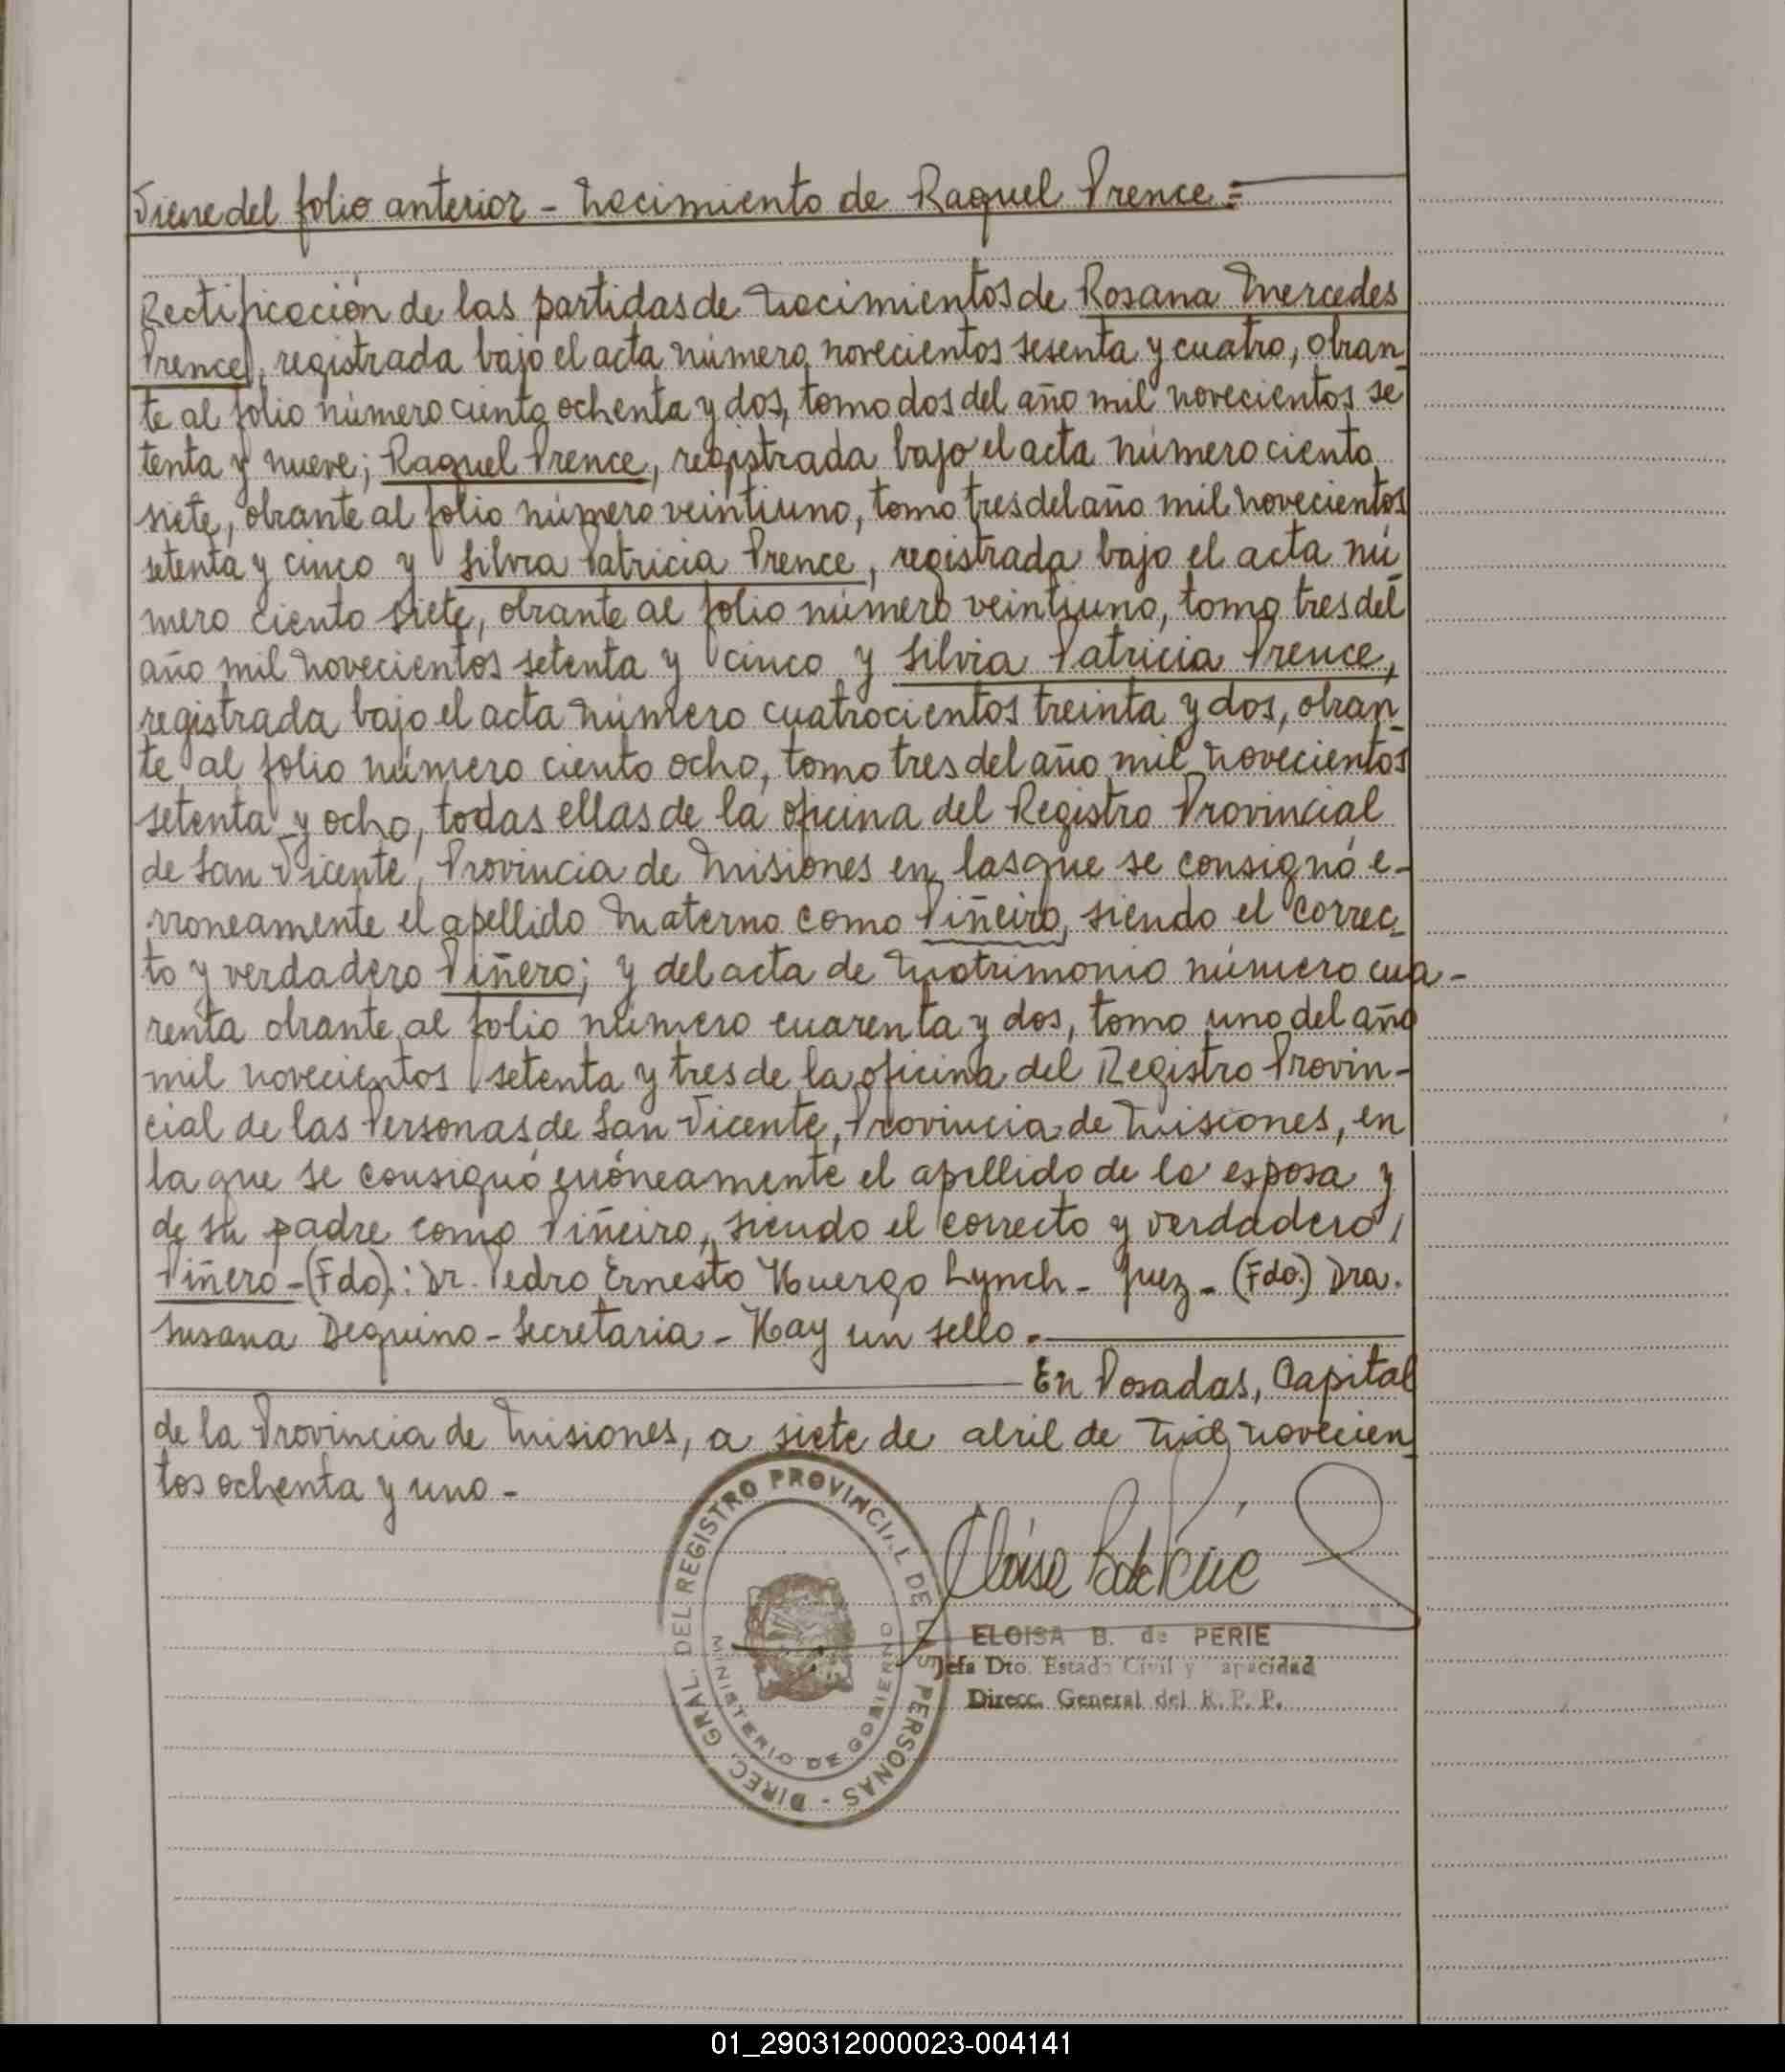 Viene del folio anterior - Nacimiento de Raquel Prence =
Rectificación de las partidas de Nacimientos de Rosana Mercedes
Prence, registrada bajo el acta número novecientos sesenta y cuatro, obran
te al folio número ciento ochenta y dos, tomo dos del año mil novecientos se
tenta y nueve; Raquel Prence, registrada bajo el acta número ciento
siete, obrante al folio número veintiuno, tomo tres del año mil novecientos
setenta y cinco y Silvia Patricia Prence, registrada bajo el acta nú
mero ciento siete, obrante al folio número veintiuno, tomo tres del
año mil novecientos setenta y cinco y Silvia Patricia Prence,
registrada bajo el acta número cuatrocientos treinta y dos, obran-
te al folio número ciento ocho, tomo tres del año mil novecientos
setenta y ocho, todas ellas de la oficina del Registro Provincial
de San Vicente, Provincia de Misiones en las que se consignó e-
rroneamente el apellido Materno como Piñeiro, siendo el correc-
to y verdadero Piñero; y del acta de Matrimonio número cua-
renta obrante al folio número cuarenta y dos, tomo uno del año
mil novecientos setenta y tres de la oficina del Registro Provin-
cial de las Personas de San Vicente, Provincia de Misiones, en
la que se consignó erróneamente el apellido de la esposa y
de su padre como Piñeiro, siendo el correcto y verdadero,
Piñero - (Fdo).: Dr. Pedro Ernesto Huergo Lynch - Juez - (Fdo.) Dra.
Susana Dequino - Secretaria - Hay un sello.-
En Posadas, Capital
de la Provincia de Misiones, a siete de abril de mil novecien
tos ochenta y uno -
DIREC. GRAL. DEL REGISTRO PROVINCIAL DE LAS PERSONAS -
MINISTERIO DE GOBIERNO
ELOISA B. de PERIE
Jefa Dto. Estado Civil y apacidad
Direcc. General del R. P. P.
01_290312000023-004141